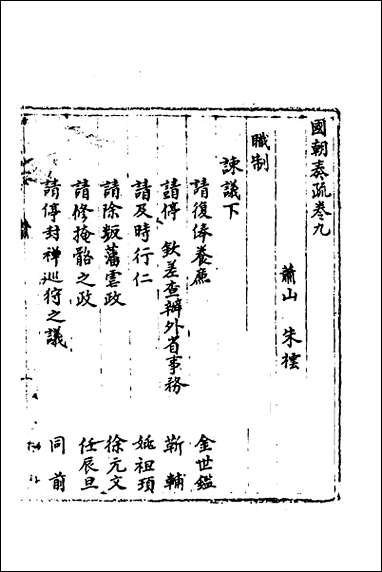 國朝奏疏卷九
蕭山 朱橒
職制
諫議下
請復俸養廉 金世鑑
請停 欽差查辦外省事務 靳輔
請及時行仁 姚祖頊
請除叛藩雲政 徐元文
請修掩骼之政 任辰旦
請停封禪巡狩之議 同前